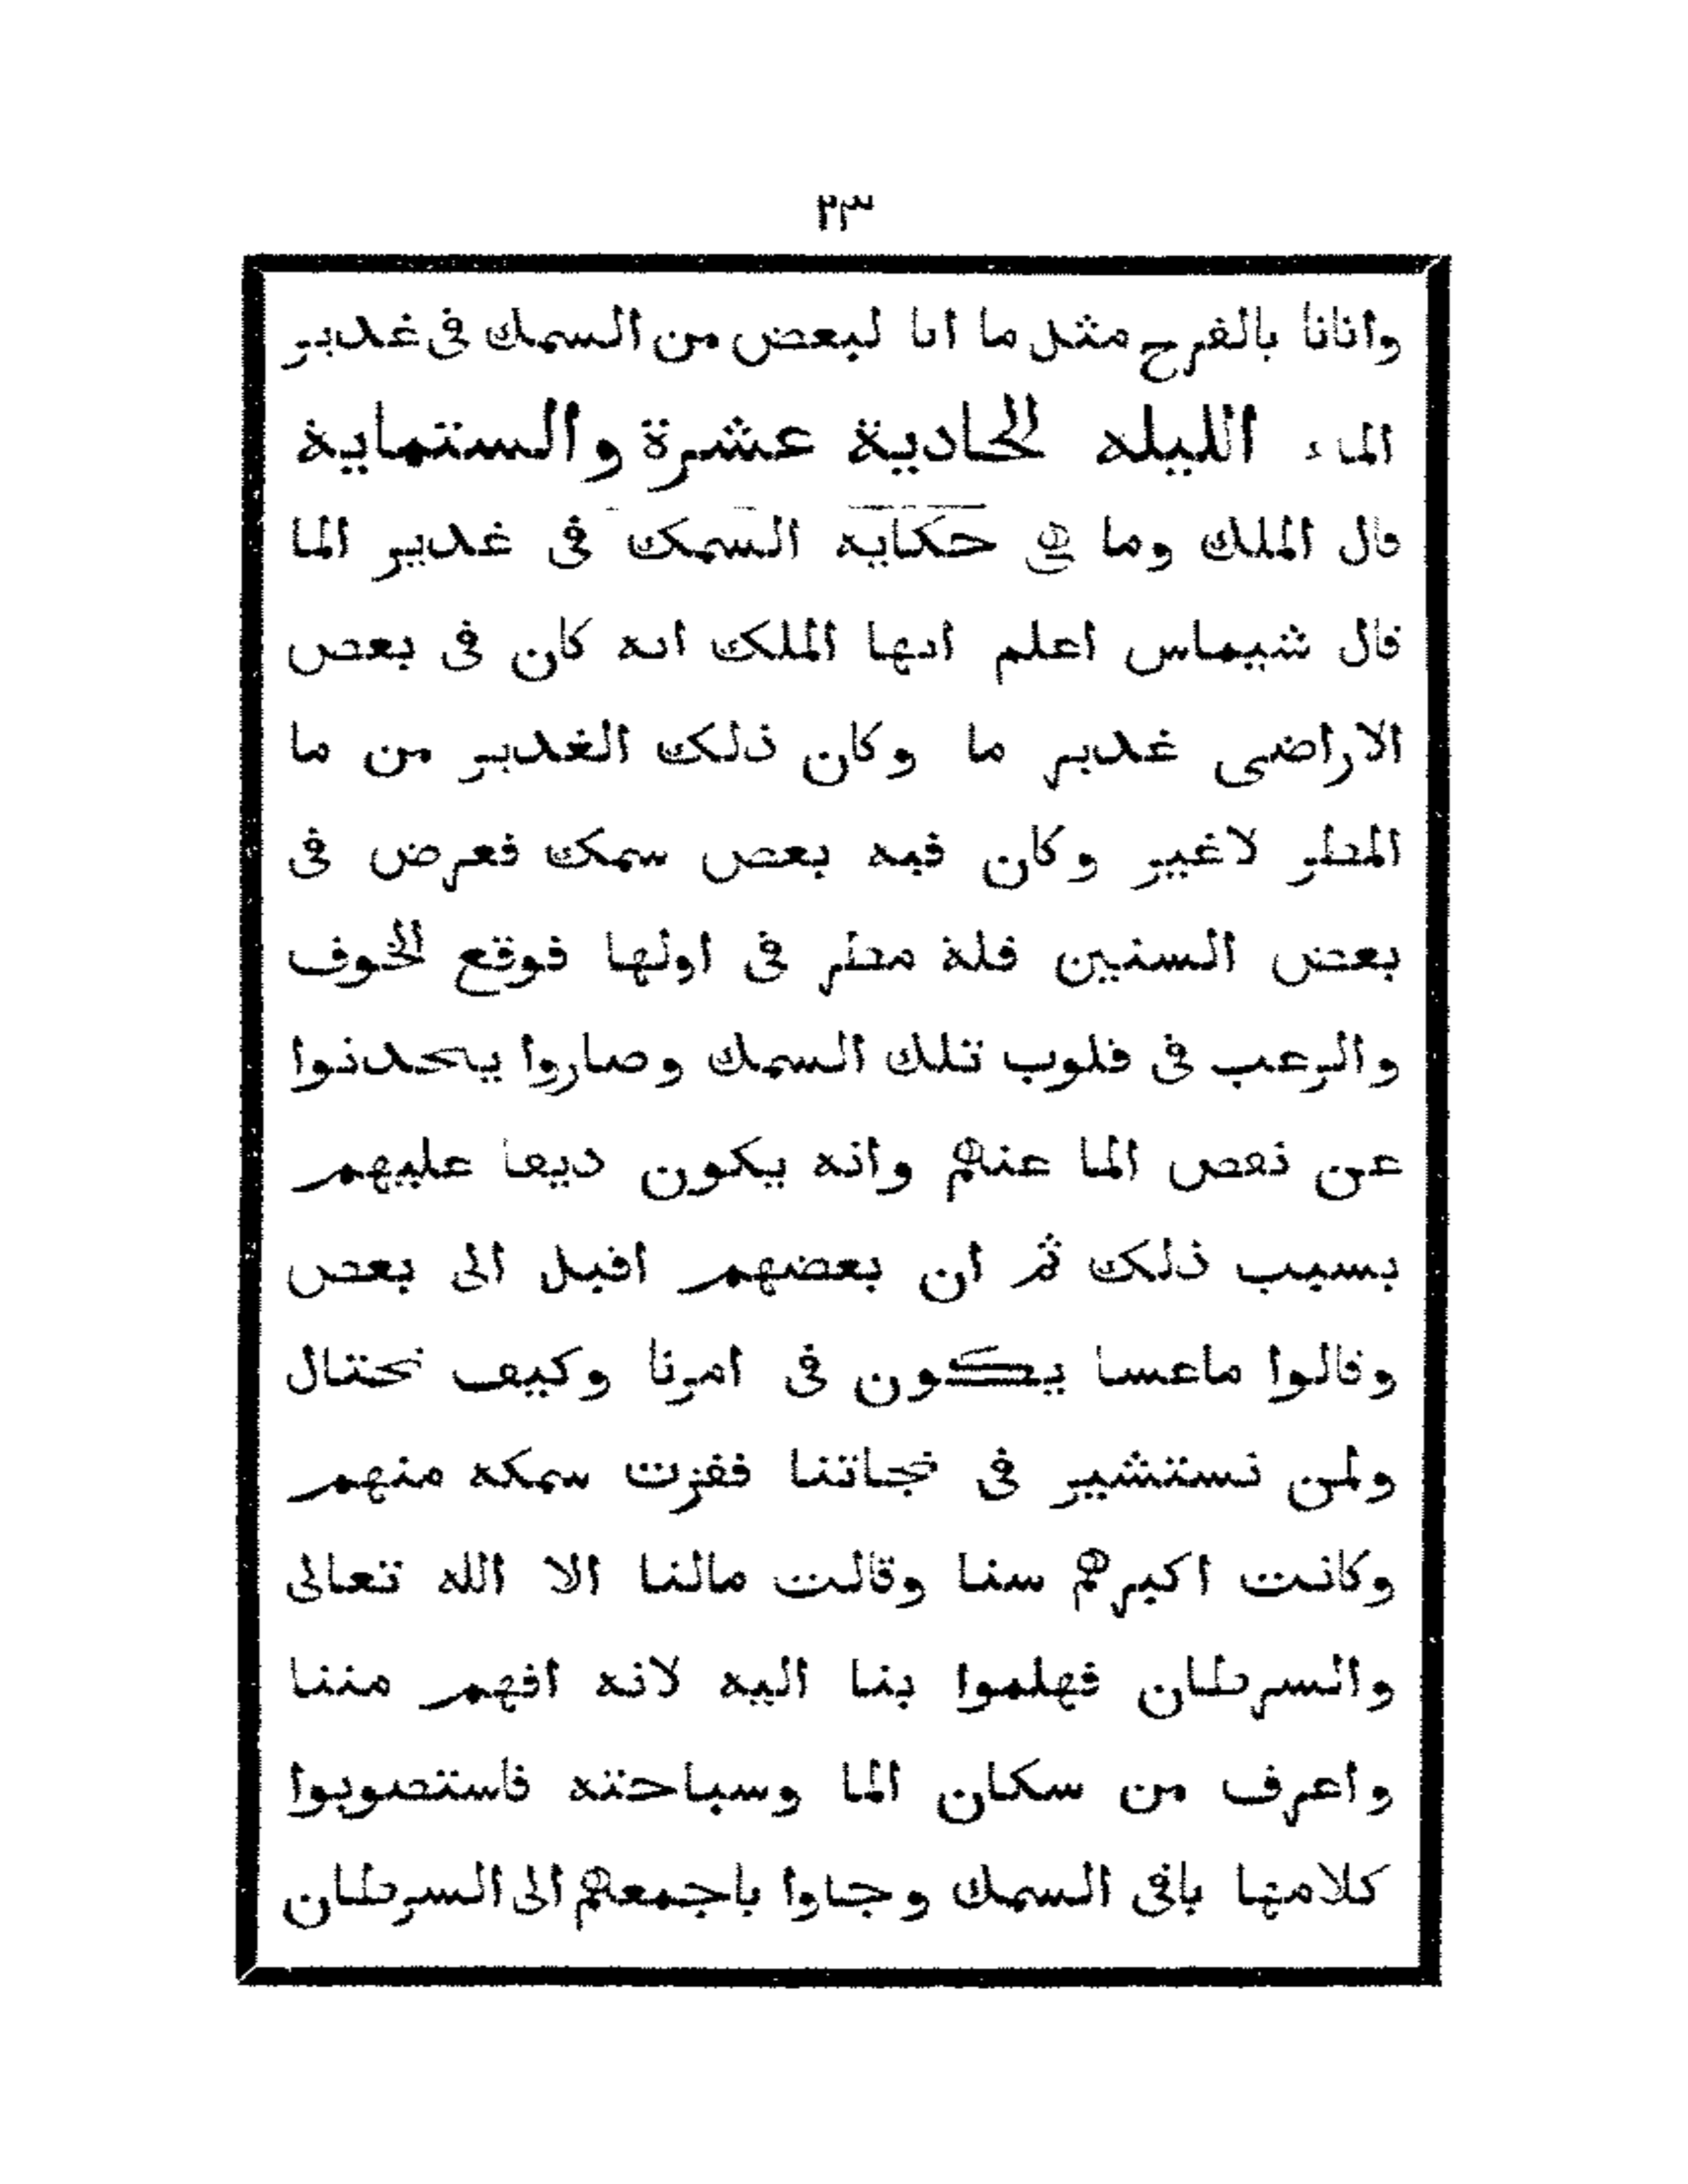 ٢٣
واتانا بالفرح مثل ما اتا لبعض من السمك فى غدير
الماء الليله الحادية عشرة والستماية
قال الملك وما هى حكايه السمك فى غدير الما
قال شيماس اعلم ايها الملك انه كان فى بعض
الاراضى غدير ما وكان ذلك الغدير من ما
المطر لاغير وكان فيه بعض سمك فعرض فى
بعض السنين قلة مطر فى اولها فوقع الخوف
والرعب فى قلوب تلك السمك وصاروا يتحدثوا
عن نقص الما عنهم وانه يكون ضيقا عليهم
بسبب ذلك ثم ان بعضهم اقبل الى بعض
وقالوا ماعسا يكون فى امرنا وكيف نحتال
ولمن نستشير فى نجاتنا فقزت سمكه منهم
وكانت اكبرهم سنا وقالت مالنا الا الله تعالى
والسرطان فهلموا بنا اليه لانه افهم مننا
واعرف من سكان الما وسباحته فاستصوبوا
كلامها باقى السمك وجاوا باجمعهم الى السرطان